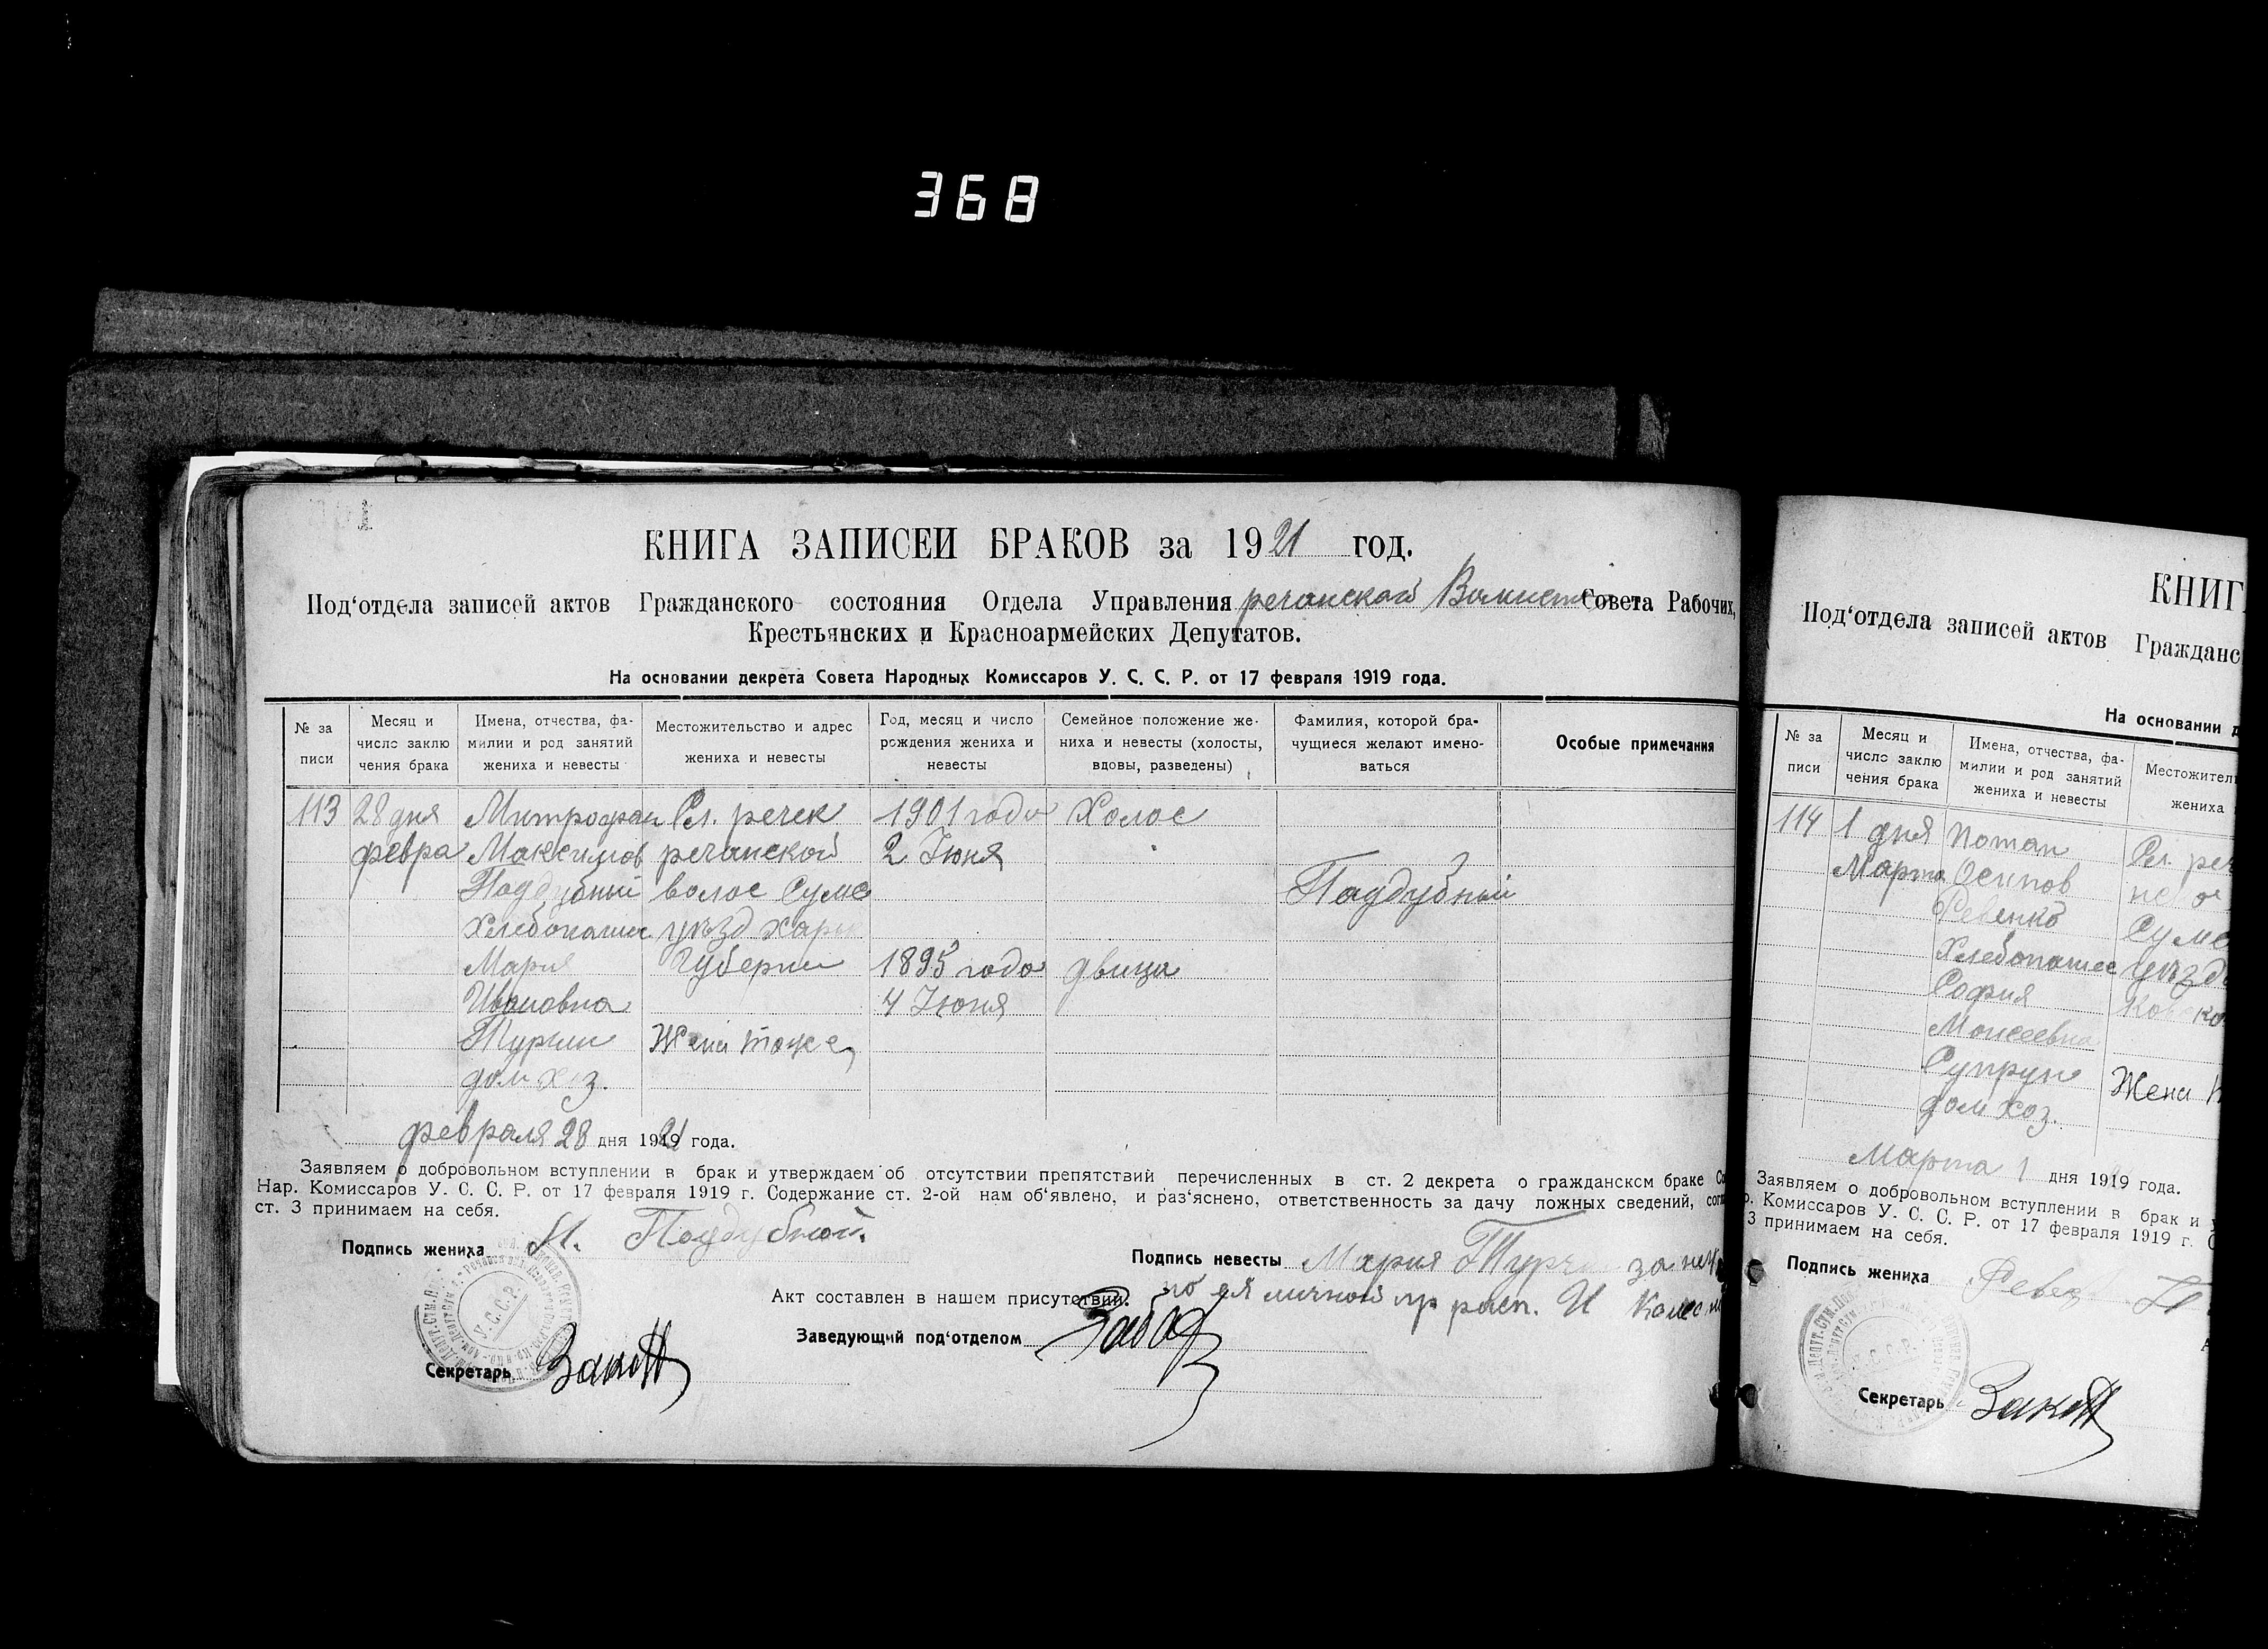 368
КНИГА ЗАПИСЕЙ БРАКОВ за 1921 год.
Под'отдела записей актов Гражданского состояния Отдела Управления речанской Совета Рабочих,
Крестьянских и Красноармейских Депутатов.
На основании декрета Совета Народных Комиссаров У. С. С. Р. от 17 февраля 1919 года.
№ за писи
Месяц и число заклю чения брака
Имена, отчества, фамилии и род занятий жениха и невесты
Местожительство и адрес жениха и невесты
Год, месяц и число рождения жениха и невесты
Семейное положение жениха и невесты (холосты, вдовы, разведены)
Фамилия, которой брачущиеся желают именоваться
Особые примечания
113 28 дня Митрофан Сл. речек 1901 года Холос
февра Максимов речанской 2 Июня
Поддубний волос Сумс Поддубний
Хлебопашец уъзд харк
Мария Губернии 1895 года двица
Ивановна 4 Июня
Турчин Жена тоже
дом хоз.
февраля 28 дня 1921 года.
Заявляем о добровольном вступлении в брак и утверждаем об отсутствии препятствий перечисленных в ст. 2 декрета о гражданском браке
Нар. Комиссаров У. С. С. Р. от 17 февраля 1919 г. Содержание ст. 2-ой нам об'явлено, и раз'яснено, ответственность за дачу ложных сведений,
ст. 3 принимаем на себя.
Подпись жениха Поддубной
Подпись невесты Мария за
Акт составлен в нашем присутствии. по ея личной
Заведующий под'отделом
У.С.С.Р.
Секретарь
КНИГ
Под'отдела записей актов Гражданс
На основании д
№ за писи
Месяц и число заклю чения брака
Имена, отчества, фамилии и род занятий жениха и невесты
Местожител жениха
114 1 дня Потап Сл. реч
Марта Осипов
Ревенко Сумс
Хлебопашец уъзд
София
Моисеевна
Супрун Жена
дом хоз.
Марта 1 дня 1919 года.
Заявляем о добровольном вступлении в брак и у
р. Комиссаров У. С. С. Р. от 17 февраля 1919 г. С
3 принимаем на себя.
Подпись жениха
Секретарь